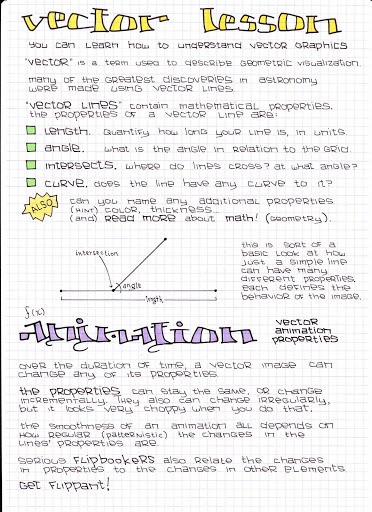 vector lesson
you can learn how to understand vector graphics
"vector" is a term used to describe geometric visualization.
many of the greatest discoveries in astronomy
were made using vector lines.
"vector lines" contain mathematical properties.
the properties of a vector line are:
length. quantify how long your line is, in units.
angle. what is the angle in relation to the grid.
intersects. where do lines cross? at what angle?
curve. does the line have any curve to it?
ALSO
can you name any additional properties
(hint) color, thickness...
(and) read more about math! (geometry).
intersection
angle
length
this is sort of a
basic look at how
just a simple line
can have many
different properties.
each defines the
behavior of the image.
f(x)
Animation
vector
animation
properties
over the duration of time, a vector image can
change any of its properties.
the properties can stay the same, or change
incrementally. they also can change irregularly,
but it looks very choppy when you do that.
the smoothness of an animation all depends on
how regular (patternistic) the changes in the
lines' properties are.
serious flipbookers also relate the changes
in properties to the changes in other elements.
get flippant!